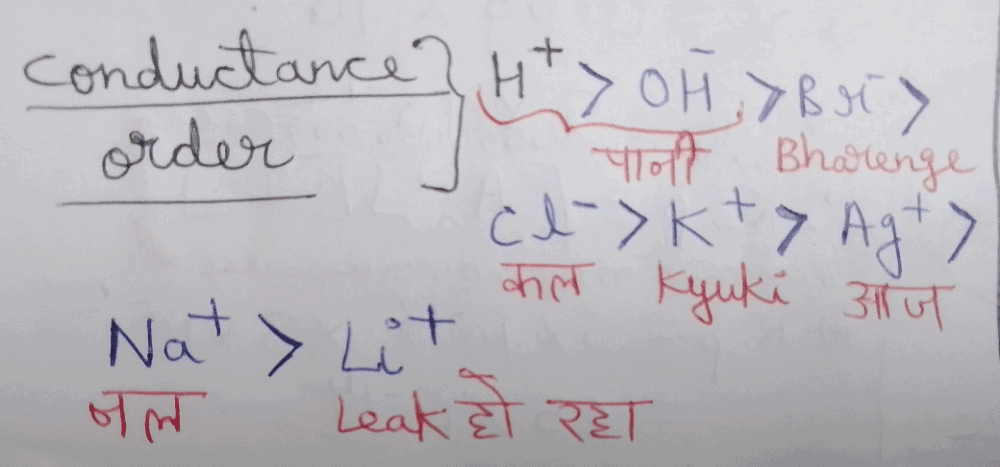 Conductance } H⁺ > OH⁻ > Br⁻ >
order पानी Bharenge
Cl⁻ > K⁺ > Ag⁺ >
कल Kyuki आज
Na⁺ > Li⁺
नल Leak हो रहा